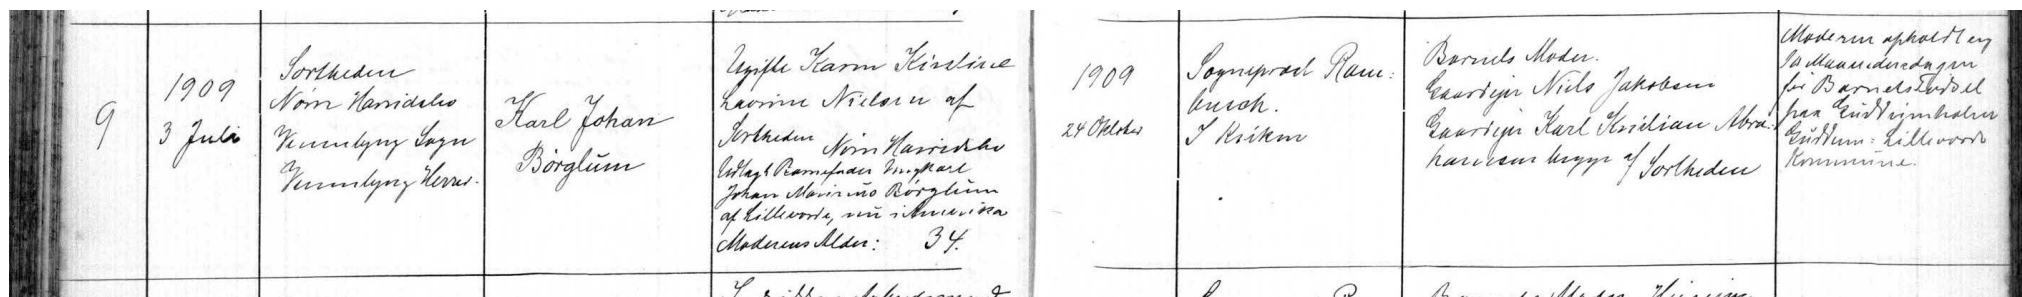 9
1909
3 Juli
Sortheden
Nørre Harridslev
Vennebjerg Sogn
Vennebjerg Herred.
Karl Johan
Børglum
Ugifte Karen Kirstine
Lavrine Nielsen af
Sortheden
Nørre Harridslev
Udlagt Barnefader Ungkarl
Johan Marinus Børglum
af Lillevorde, nu i Amerika
Moderens Alder: 34.
1909
24 Oktober
Sognepræst Ram=
busch.
I Kirken
Barnets Moder.
Gaardejer Niels Jakobsen
Gaardejer Karl Kristian Abra=
hamsen begge af Sortheden
Moderen opholdt sig
10 Maanedersdagen
før Barnets Fødsel
paa Gudumholm
Gudum= Lillevorde
Kommune.